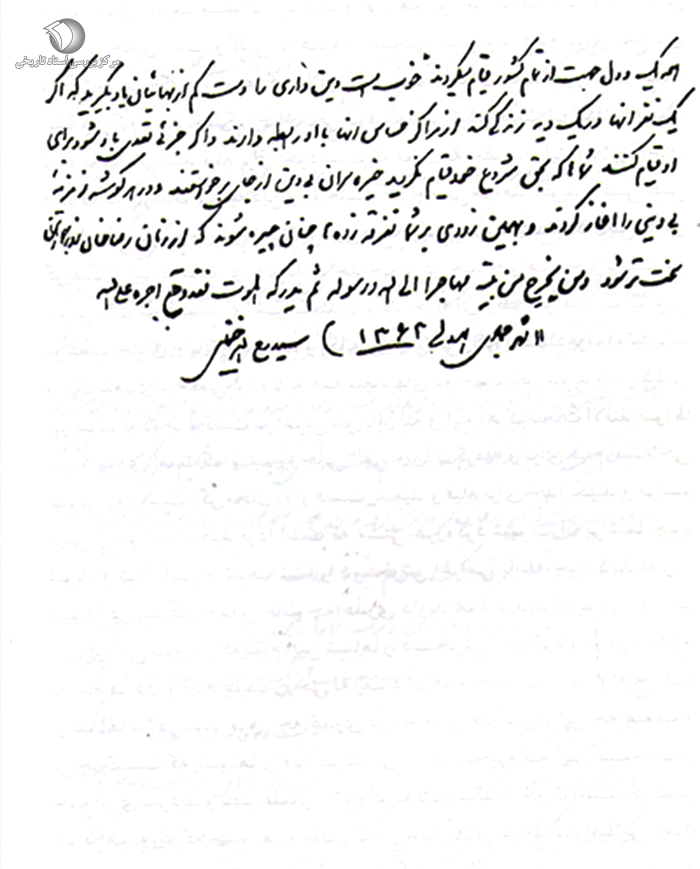 مرکز بررسی اسناد تاریخی
همه یک و دل جهت از تمام کشور قیام میکردند خوب است دین داری را دست کم از بهائیان یاد بگیرید که اگر
یک نفر آنها در یک دیه زندگی کند از مراکز حساس آنها با او رابطه دارند و اگر جزئی تعدی باو شود برای
او قیام کنند شماها که بحق مشروع خود قیام نکردید خیره سران بی دین از جای برخواستند و در هر گوشه زمزمهٔ
بی دینی را آغاز کردند و بهمین زودی بر شما تفرقه زده ها چنان چیره شوند که از زمان رضاخان روزگارتان
سخت تر شود ومن یخرج من بیته مهاجرا الی الله ورسوله ثم یدرکه الموت فقد وقع اجره علی الله
۱۱ شهر جمادی الاولی ۱۳۶۳) سید روح الله خمینی